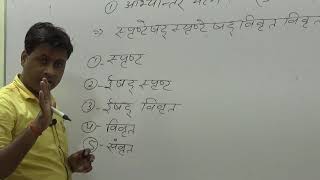 ① आभ्यान्तर
⇒ स्पृष्टेषद् स्पृष्टेषद् विवृत विवृत
①- स्पृष्ट
②- ईषद् स्पृष्ट
③- ईषद् विवृत
④- विवृत
⑤- संवृत